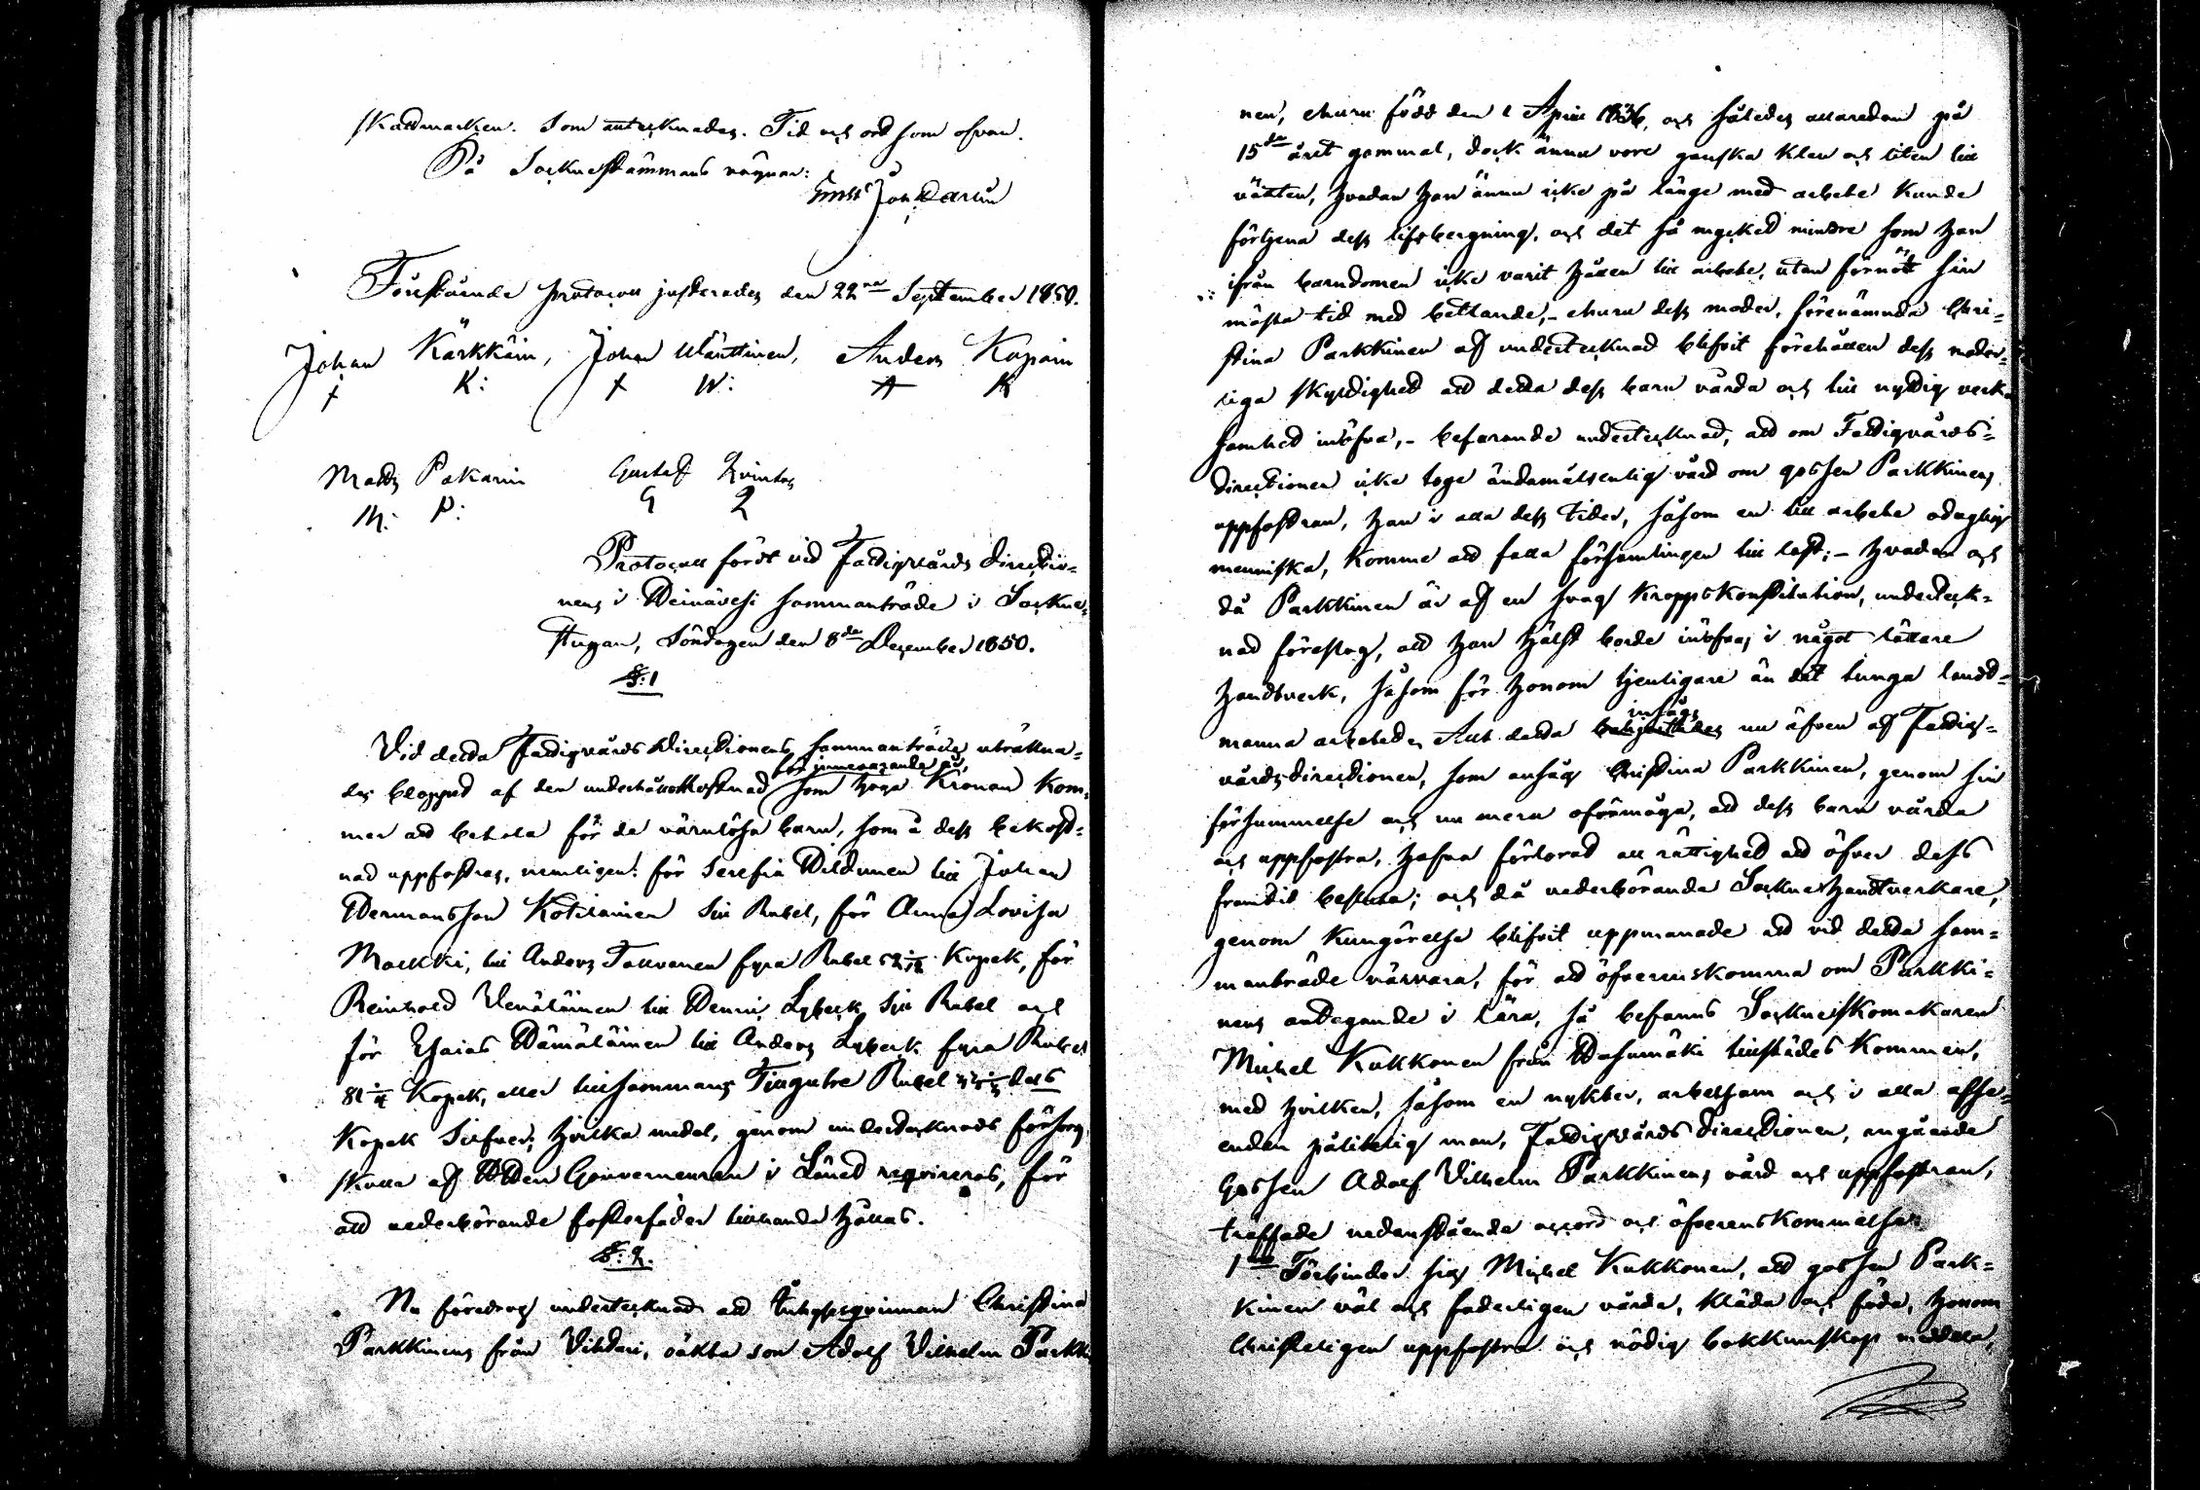 skattmarken. Som antecknades. Tid och ort som ofvan.
På Sockneståmmans vägnar:
Joh. Darin
Föreståénde protocoll justerades den 22ra September 1850.
Johan Kärkkäin, Johan Wänttinen, Anders Kopain
+ K: + W: A K
Matts Pakarin Gustaf Qvintus
M: P: G Q
Protocoll fördt vid Fattigvårds Directio-
nens i Heinävesi sammanträde i Sockne-
stugan, Söndagen den 8de December 1850.
§:1
Vid detta Fattigvårds Directionens sammanträde uträkna-
des beloppet af den underhållskostnad för innevarande år, som höga Kronan kom-
mer att betala för de värnlösa barn, som å dess bekost-
nad uppfostras, nemligen: för Serefia till Johan
Hermansson Kotilainen Sju Rubel, för Anna Lovisa
Malkki, till Anders Tallvanen fyra Rubel Kopek, för
Reinhold Venäläinen till Henric Lybeck Sju Rubel och
för Esaias Hämäläinen till Anders Lybeck fyra Rubel
Kopek, eller tillsammans Tjugutre Rubel
Kopek Silfver; hvilka medel, genom undertecknads försorg
skulle af HHerr Gouverneuren i Länet reqvireras, för
att vederbörande fosterfäder tillhanda hållas.
§:2.
Nu föredrog undertecknad att Inhysesqvinnan Christina
Parkkinens från Vihtari, oäkta son Adolf Vilhelm Parkki
nen, ehuru född den 1 April 1836, och således allaredan på
15de året gammal, dock ännu vore ganska klen och liten till
växten, hvadan han ännu icke på länge med arbete kunde
förtjena dess lifsbergning, och det så mycket mindre som han
ifrån barndomen icke varit hållen till arbete, utan förnött sin
mästa tid med bettlande,- ehuru dess moder, förenämnda Chri-
stina Parkkinen af undertecknad blifvit förehållen dess moder-
liga skyldighet att detta dess barn vårda och till nyttig verk-
samhet inöfva,- befarande undertecknad, att om Fattigvårds-
directionen icke toge ändamålsenlig vård om gossen Parkkinens
uppfostran, han i alla dess tider, såsom en till arbete oduglig
menniska, komme att falla församlingen till last;- hvadan och
då Parkkinen är af en svag Kroppskonstitution, underteck-
nad föreslog, att han hälst borde inöfvas i något lättare
handtverk, såsom för honom tjenligare än det tunga landt-
manna arbetet. Allt detta insågs nu äfven af Fattig-
vårdsdirectionen, som ansåg Christina Parkkinen, genom sin
försummelse och nu mera oförmåga, att dess barn vårda
och uppfostra, hafva förlorad all rättighet att öfver dess
framtid besluta; och då vederbörande Sockne handtverkare,
genom kungörelse blifvit uppmanade att vid detta sam-
manträde närvara, för att öfverenskomma om Parkki-
nens antagande i lära, så befanns Sockneskomakaren
Michel Kukkonen från Hasumäki tillstädes kommen,
med hvilken, såsom en nykter, arbetsam och i alla afse-
enden pålitelig man, Fattigvårds directionen, angående
Gossen Adolf Vilhelm Parkkinens vård och uppfostran,
träffade nedanstående accord och öfverenskommelse:
1mo Förbinder sig Michel Kukkonen, att gossen Park-
kinen väl och faderligen vårda, kläda och föda, honom
Christeligen uppfostra och nödig bokkunskap meddela,